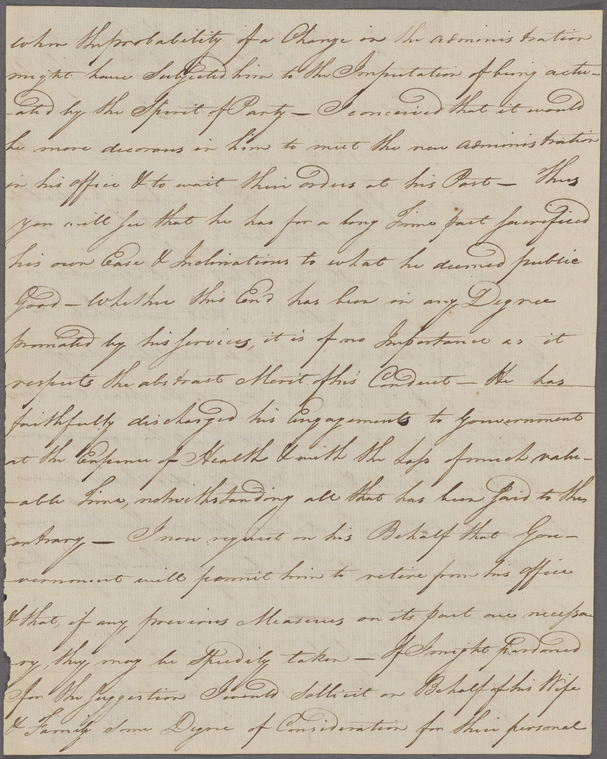 when the probability of a Change in the administration
might have Subjected him to the Imputation of being actu-
-ated by the Spirit of Party — I conceived that it would
be more decorous in him to meet the new administration
in his office & to wait their orders at his Post — Thus
you will see that he has for a long Time past sacrificed
his own Ease & Inclinations to what he deemed public
Good — Whether this End has been in any Degree
promoted by his services, it is of no Importance as it
respects the abstract Merit of his Conduct — He has
faithfully discharged his Engagements to Government
at the Expence of Health & with the Loss of much valu-
-able Time, notwithstanding all that has been said to the
contrary — I now request on his Behalf that Gov-
-vernment will permit him to retire from his office
& that, if any previous Measures on its part are necessa
ry, they may be speedily taken — If I might pardoned
for the suggestion I would sollicit on Behalf of his Wife
& Family some Degree of Consideration for their personal